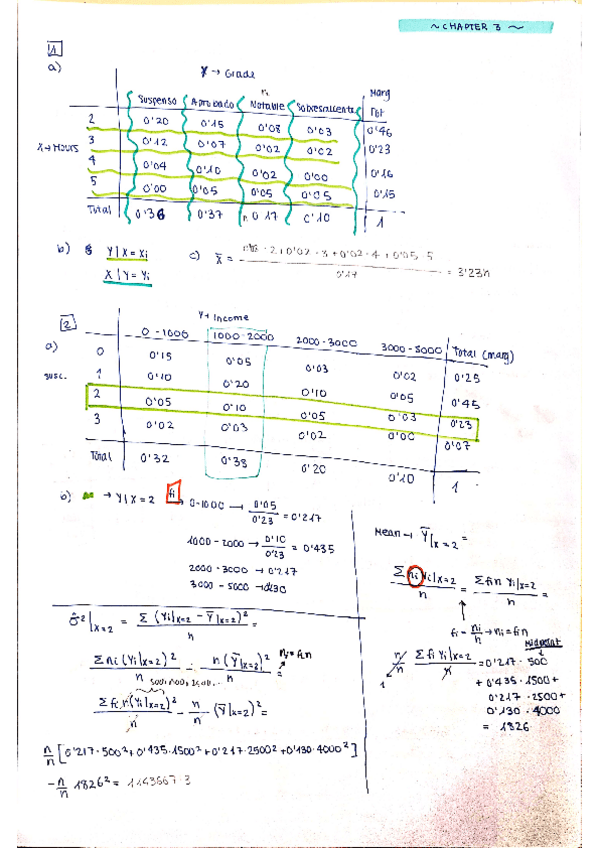 ~ CHAPTER 3 ~
1
a)
Y → Grade
Marg
Suspenso Aprobado Notable Sobresaliente Tot
2 0'20 0'15 0'08 0'03 0'46
X → Hours 3 0'12 0'07 0'02 0'02 0'23
4 0'04 0'10 0'02 0'00 0'16
5 0'00 0'05 0'05 0'05 0'15
Total 0'36 0'37 0'17 0'10 1
b) Y | X = Xi
X | Y = Yi
c) x̄ = · 2 + 0'02 · 3 + 0'02 · 4 + 0'05 · 5 / 0'17 = 3'23h
2
Y → Income
a) 0 - 1000 1000 - 2000 2000 - 3000 3000 - 5000 Total (marg)
0 0'15 0'05 0'03 0'02 0'25
susc. 1 0'10 0'20 0'10 0'05 0'45
2 0'05 0'10 0'05 0'03 0'23
3 0'02 0'03 0'02 0'00 0'07
Total 0'32 0'38 0'20 0'10 1
b) → Y | X = 2 fi
0-1000 → 0'05 / 0'23 = 0'217
1000 - 2000 → 0'10 / 0'23 = 0'435
2000 - 3000 → 0'217
3000 - 5000 → 0'130
σ̂² |x=2 = Σ (Yi|x=2 - Ȳ|x=2)² / n =
Σ ni (Yi|x=2)² / n - n (Ȳ|x=2)² / n = ni = fi.n
500, 1500, 2500...
Σ fi.n (Yi|x=2)² / n - n/n (Ȳ|x=2)² =
n/n [0'217 · 500² + 0'435 · 1500² + 0'217 · 2500² + 0'130 · 4000²]
- n/n 1826² = 1143667'3
Mean → Ȳ|x=2 =
Σ ni Yi|x=2 / n = Σ fi n Yi|x=2 / n =
fi = ni/n → ni = fi n
Midpoint
n/n Σ fi Yi|x=2 / n = 0'217 · 500
1
+ 0'435 · 1500 +
0'217 · 2500 +
0'130 · 4000
= 1826